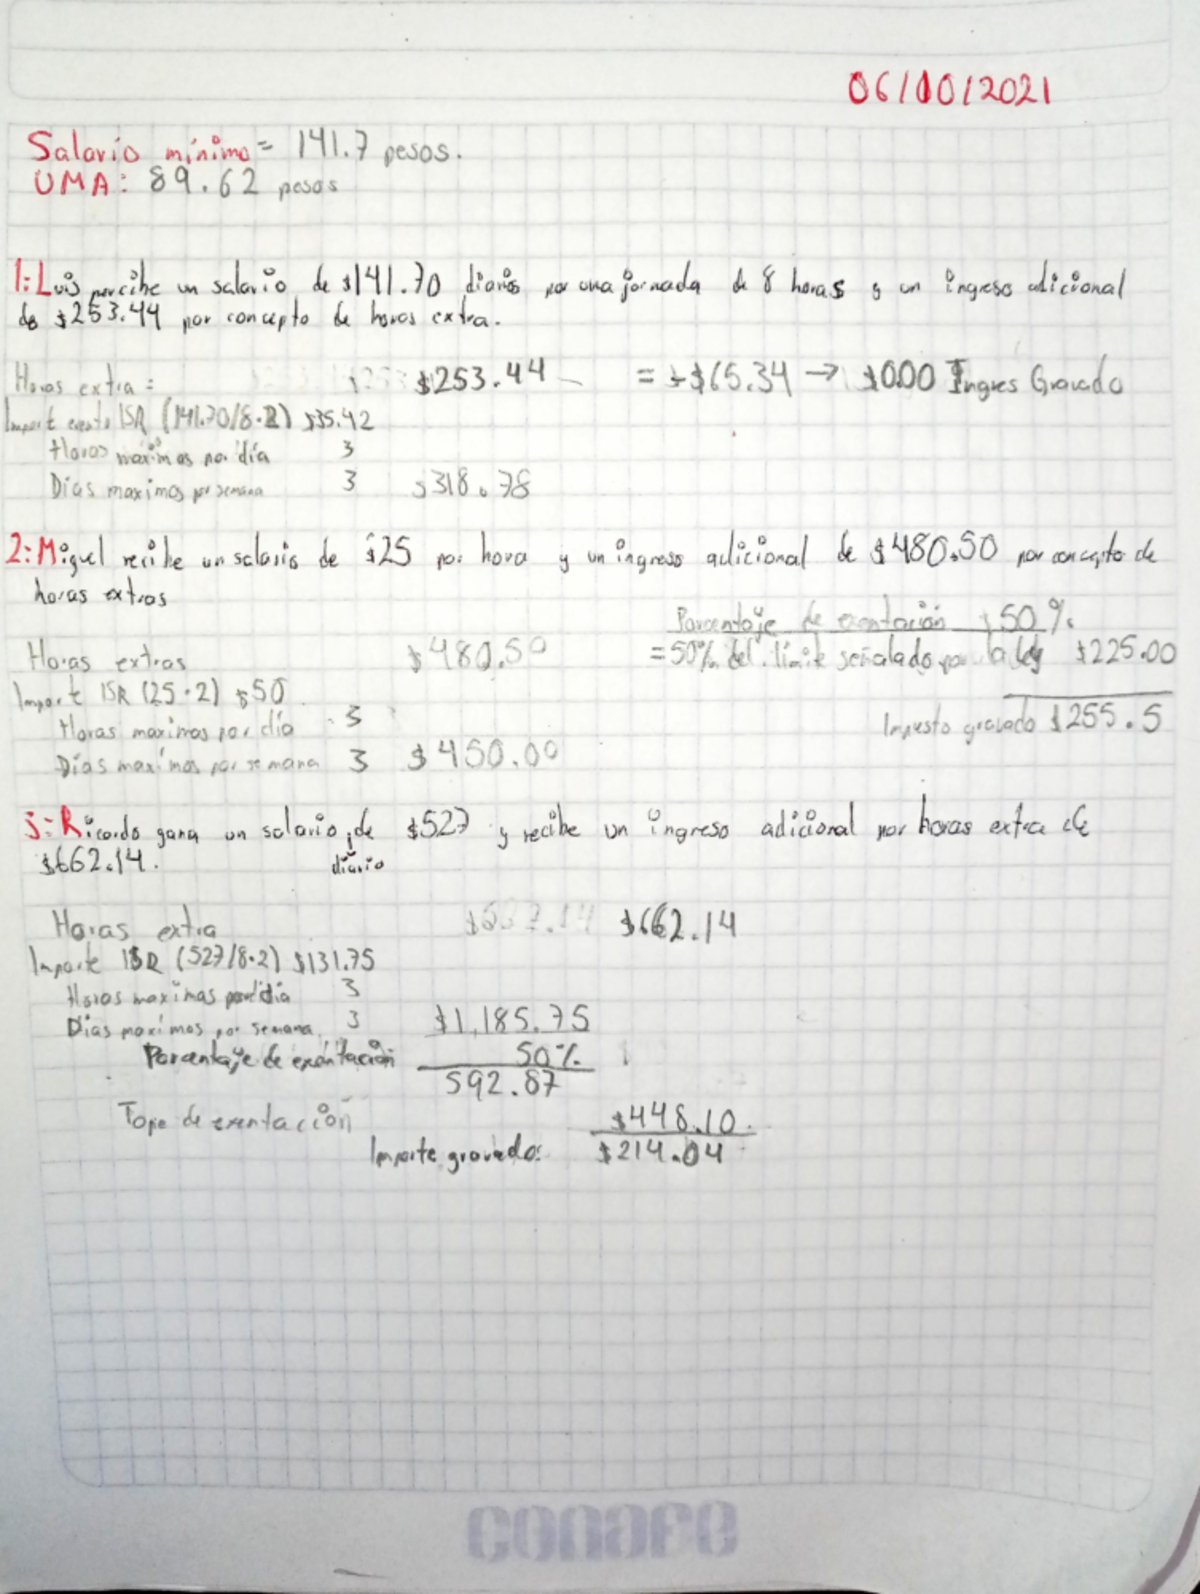 06/10/2021
Salario mínimo = 141.7 pesos.
UMA: 89.62 pesos
1: Luis percibe un salario de $141.70 diarios por una jornada de 8 horas y un ingreso adicional
de $253.44 por concepto de horas extra.
Horas extra = $253.44 = -$65.34 → $0.00 Ingres Gravado
Import exento ISR (141.70/8·2) $35.42
Horas maximas por día 3
Dias maximos por semana 3 $318.78
2: Miguel recibe un salario de $25 por hora y un ingreso adicional de $480.50 por concepto de
horas extras
Porcentaje de exentación 50%
Horas extras $480.50 = 50% del limite señalado por la ley $225.00
Import ISR (25·2) $50
Horas maximas por día 3 Impuesto gravado $255.5
Días maximos por semana 3 $450.00
3: Ricardo gana un salario de $527 y recibe un ingreso adicional por horas extra de
$662.14. diario
Horas extra $662.14
Importe ISR (527/8·2) $131.75
Horas maximas por dia 3
Dias maximos por semana 3 $1,185.75
Porcentaje de exentación 50%
592.87
Tope de exentación $448.10
Importe gravado: $214.04
conafe